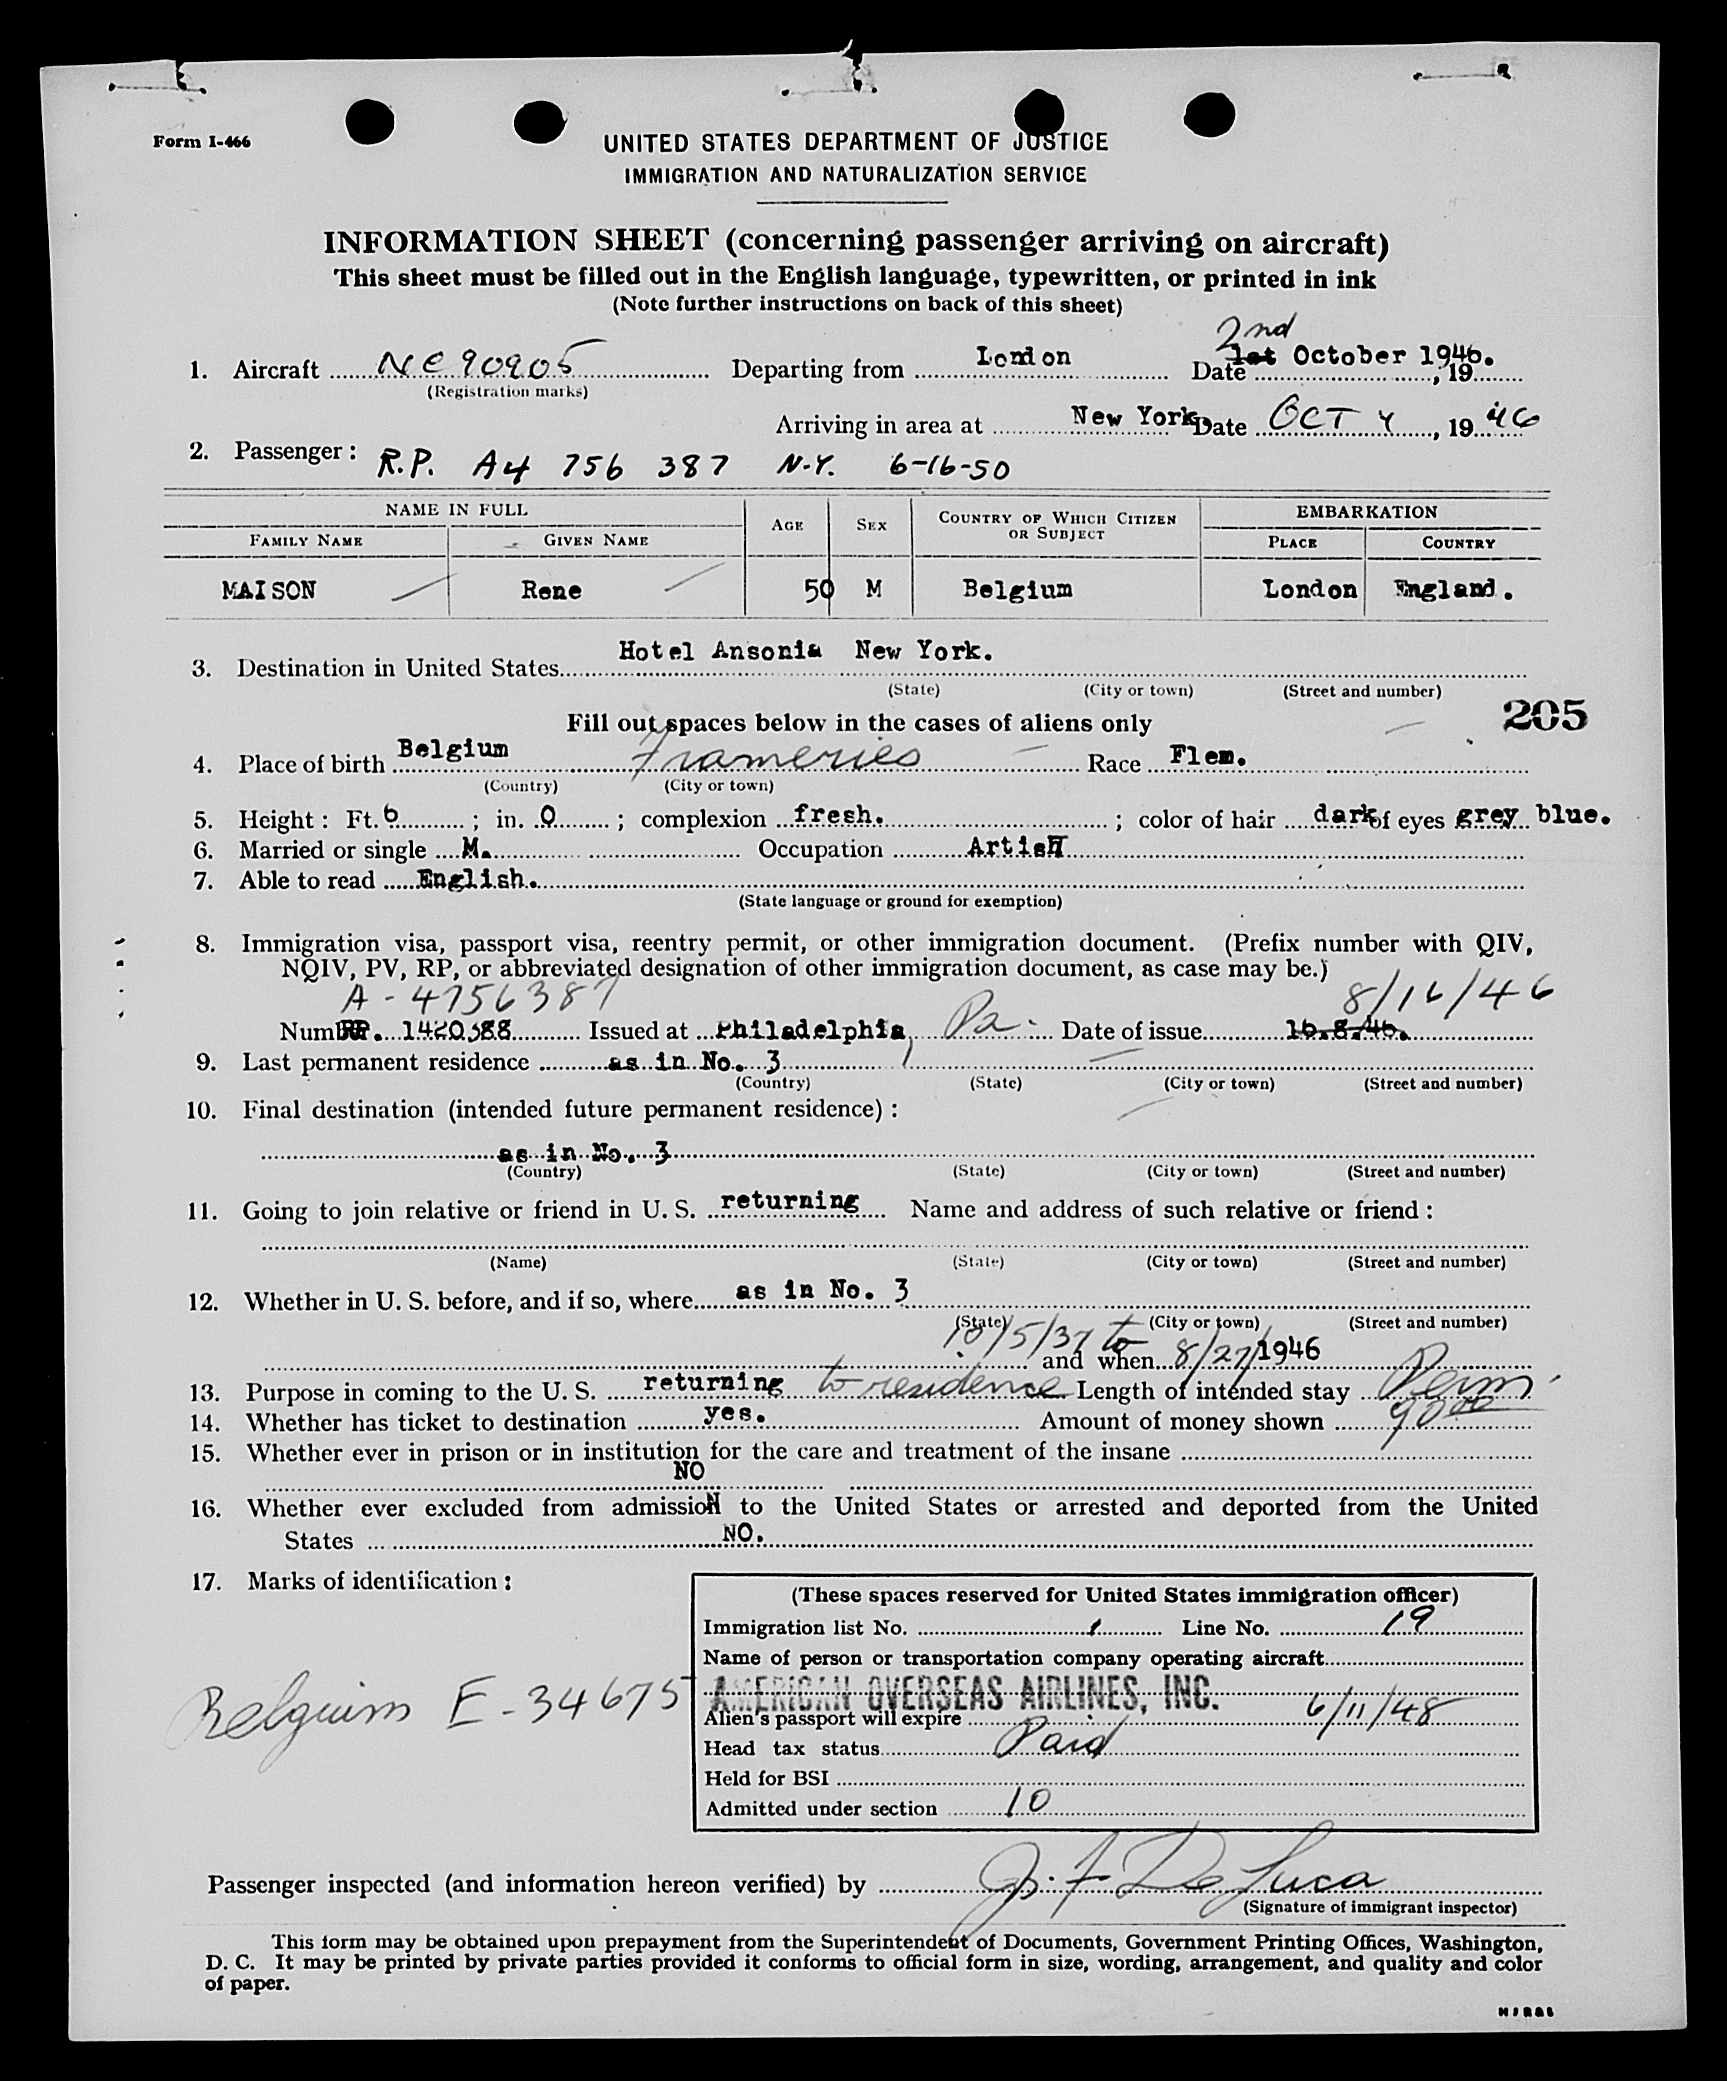 Form I-466
UNITED STATES DEPARTMENT OF JUSTICE
IMMIGRATION AND NATURALIZATION SERVICE
INFORMATION SHEET (concerning passenger arriving on aircraft)
This sheet must be filled out in the English language, typewritten, or printed in ink
(Note further instructions on back of this sheet)
2nd
1. Aircraft NC 90905 Departing from London Date 1st October 1946. , 19
(Registration marks)
Arriving in area at New York. Date OCT 4, 19 46
2. Passenger: R.P. A4 756 387 N.Y. 6-16-50
NAME IN FULL AGE SEX COUNTRY OF WHICH CITIZEN OR SUBJECT EMBARKATION
FAMILY NAME GIVEN NAME PLACE COUNTRY
MAISON Rene 50 M Belgium London England.
3. Destination in United States Hotel Ansonia New York.
(State) (City or town) (Street and number)
Fill out spaces below in the cases of aliens only 205
4. Place of birth Belgium Frameries Race Flem.
(Country) (City or town)
5. Height: Ft. 6 ; in. 0 ; complexion fresh. ; color of hair dark of eyes grey blue.
6. Married or single M. Occupation Artist
7. Able to read English.
(State language or ground for exemption)
8. Immigration visa, passport visa, reentry permit, or other immigration document. (Prefix number with QIV,
NQIV, PV, RP, or abbreviated designation of other immigration document, as case may be.)
A-4756387 8/16/46
Numb RP. 1420388 Issued at Philadelphia, Pa. Date of issue 16.8.46.
9. Last permanent residence as in No. 3
(Country) (State) (City or town) (Street and number)
10. Final destination (intended future permanent residence):
as in No. 3
(Country) (State) (City or town) (Street and number)
11. Going to join relative or friend in U. S. returning Name and address of such relative or friend:
(Name) (State) (City or town) (Street and number)
12. Whether in U. S. before, and if so, where as in No. 3
(State) (City or town) (Street and number)
10/5/37 to
and when 8/27/1946
13. Purpose in coming to the U. S. returning to residence Length of intended stay Perm.
14. Whether has ticket to destination yes. Amount of money shown 90.00
15. Whether ever in prison or in institution for the care and treatment of the insane
NO
16. Whether ever excluded from admission to the United States or arrested and deported from the United
States NO.
17. Marks of identification:
(These spaces reserved for United States immigration officer)
Immigration list No. 1 Line No. 19
Name of person or transportation company operating aircraft
Belguim E-34675 AMERICAN OVERSEAS AIRLINES, INC.
Alien's passport will expire 6/11/48
Head tax status Paid
Held for BSI
Admitted under section 10
Passenger inspected (and information hereon verified) by J. F. De Luca
(Signature of immigrant inspector)
This form may be obtained upon prepayment from the Superintendent of Documents, Government Printing Offices, Washington,
D. C. It may be printed by private parties provided it conforms to official form in size, wording, arrangement, and quality and color
of paper.